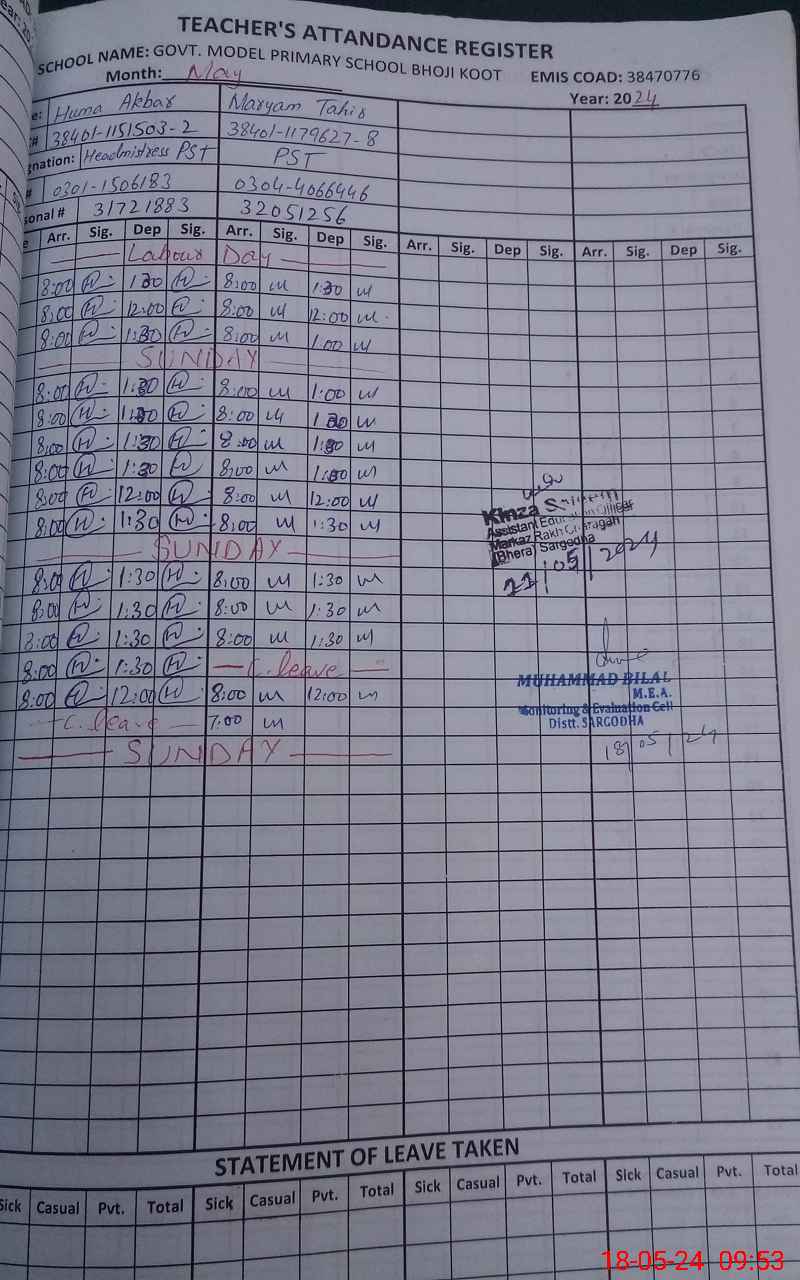 TEACHER'S ATTANDANCE REGISTER
SCHOOL NAME: GOVT. MODEL PRIMARY SCHOOL BHOJI KOOT EMIS COAD: 38470776
Month: May Year: 2024
Huma Akbar Maryam Tahir
38401-1151503-2 38401-1179627-8
gnation: Headmistress PST PST
0301-1506183 0304-4066446
sonal # 31721883 32051256
Arr. Sig. Dep Sig. Arr. Sig. Dep Sig. Arr. Sig. Dep Sig. Arr. Sig. Dep Sig.
Labour Day
8:00 1:30 8:00 1:30
8:00 12:00 8:00 12:00
8:00 1:30 8:00 1:00
SUNDAY
8:00 1:30 8:00 1:00
8:00 1:30 8:00 1:30
8:00 1:30 8:00 1:30
8:00 1:30 8:00 1:30
8:00 12:00 8:00 12:00
8:00 1:30 8:00 1:30
SUNDAY
8:00 1:30 8:00 1:30
8:00 1:30 8:00 1:30
8:00 1:30 8:00 1:30
8:00 1:30 C. leave
8:00 12:00 8:00 12:00
C. leave 7:00
SUNDAY
Kinza
Assistant Education Officer
Markaz Rakh Charagah
(Bhera) Sargodha
05 2024
MUHAMMAD BILAL
M.E.A.
Monitoring & Evaluation Cell
Distt. SARGODHA
18/05/24
STATEMENT OF LEAVE TAKEN
Sick Casual Pvt. Total Sick Casual Pvt. Total Sick Casual Pvt. Total Sick Casual Pvt. Total
18-05-24 09:53